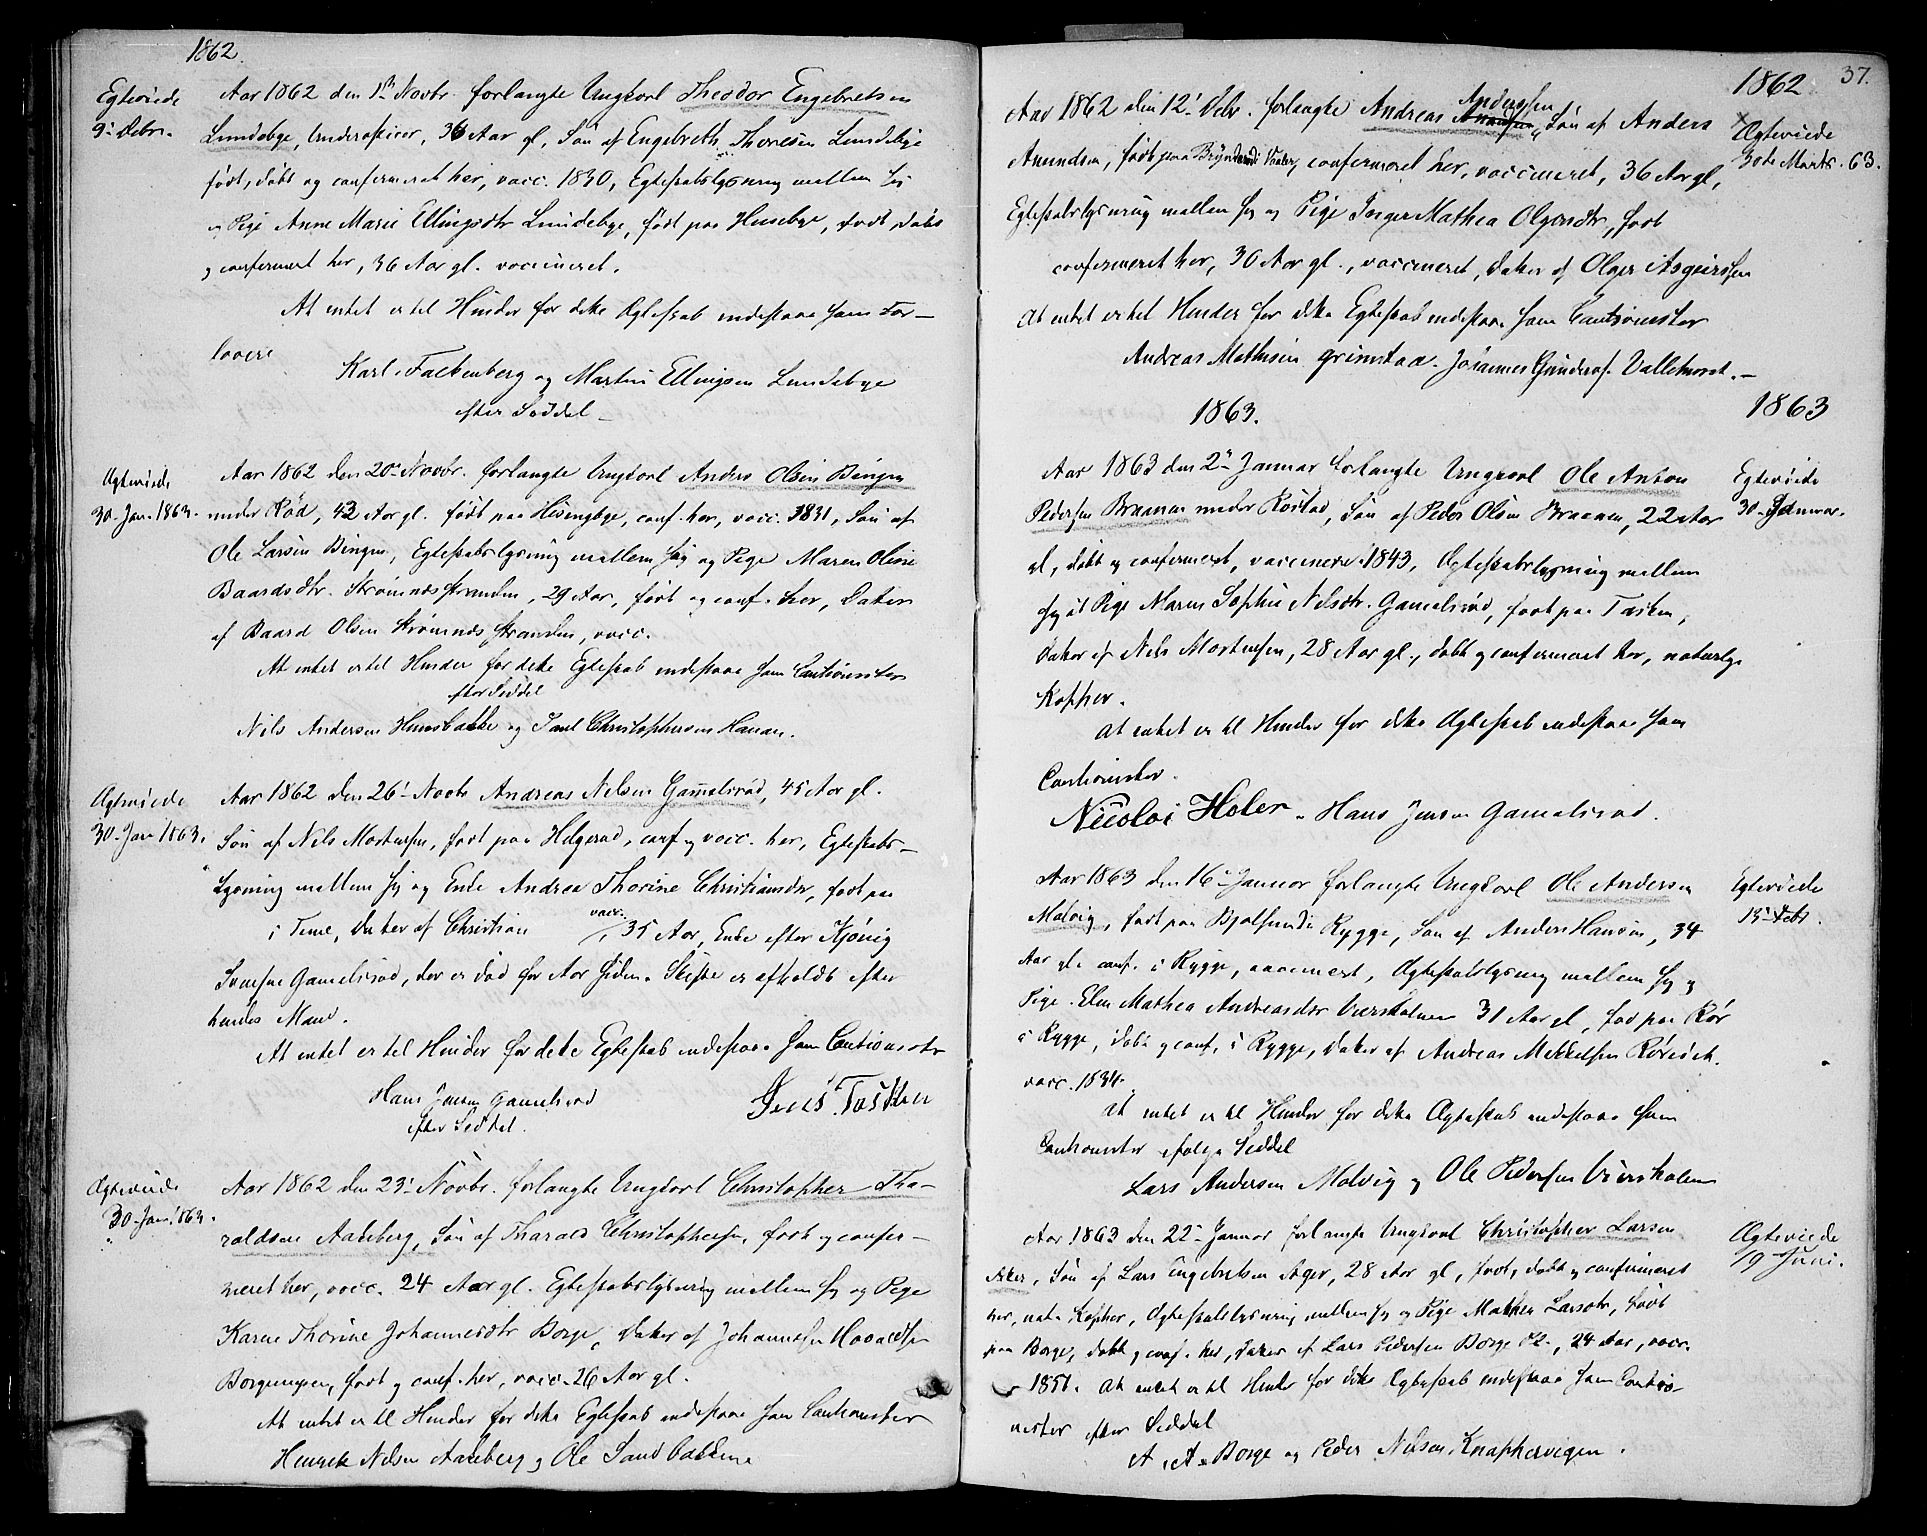 1862.
Egteviede
9' Debr.
Aar 1862 den 1ste Novbr. forlangte Ungkarl Theodor Engebretsen
Lundebye, Underofficer, 36 Aar gl, Søn af Engebreth Thoresen Lundebye
født, døbt og confermeret her, vacc. 1830, Egteskabslysning mellem sig
og Pige Anne Marie Ellingsdtr Lundebye, født paa Husebye, født, døbt
og confermert her, 36 Aar gl. vaccineret.
At intet er til Hinder for dette Egteskab indestaae som For-
lovere
Karl Falkenberg og Martin Ellingsen Lundebye
efter Seddel
Ægteviede
30. Jan. 1863.
Aar 1862 den 20de Novbr. forlangte Ungkarl Anders Olsen Bingen
under Rød, 42 Aar gl. født paa Hisingbye, conf. her, vacc. 1831, Søn af
Ole Larsen Bingen, Egteskabslysning mellem sig og Pige Maren Oline
Baardsdtr. Strømnesstranden, 29 Aar, født og conf. her, Datter
af Baard Olsen Strømnesstranden, vacc.
At intet er til Hinder for dette Egteskab indestaae som Cautionister
efter Seddel
Nils Andersen Hunsbakke og Paul Christophersen Hanan.
Ægteviede
30. Jan 1863.
Aar 1862 den 26' Novbr Andreas Nilsen Gamelsrød, 45 Aar gl.
Søn af Nils Mortensen, født paa Helgerød, conf og vacc. her, Egteskabs-
lysning mellem sig og Enke Andrea Thorine Christiansdtr, født paa
i Tune, Datter af Christian vacc. 35 Aar, Enke efter
Gamelsrød, der er død for Aar siden. Skifte er afholdt efter
hendes Mand.
At intet er til Hinder for dette Egteskab indestaae som Cautionister
Hans Jensen Gamelsrød Jens Tasken
efter Seddel.
Ægteviede
30. Jan. 1863.
Aar 1862 den 23' Novbr. forlangte Ungkarl Christopher Tha-
raldsen Aaleberg, Søn af Tharald Christophersen, født og confer-
meret her, vacc. 24 Aar gl. Egteskabslysning mellem sig og Pige
Karen Thorine Johannesdtr Borge, Datter af Johannes
Borgeengen, født og conf. her, vacc. 26 Aar gl.
At intet er til Hinder for dette Egteskab indestaae som Cautionister
Henrik Nilsen Aaleberg og Ole Sandbakken
1862 37.
× Ægteviede
30te Marts. 63.
Aar 1862 den 12' Debr. forlangte Andreas Anderssen, Søn af Anders
Amundsen, født paa i Vaaler, confermeret her, vaccineret, 36 Aar gl,
Egteskabslysning mellem sig og Pige Inger Mathea Olgersdtr, født
confermeret her, 30 Aar gl., vaccineret, Datter af Olger Asgeirssen
At intet er til Hinder for dette Egteskab indestaae som Cautionister
Andreas Mathisen Grimstad. Johannes Gunders. Vallehoret.
1863. 1863
Egteviede
30. Januar.
Aar 1863 den 2' Januar forlangte Ungkarl Ole Anton
Pedersen Braanan under Rostad, Søn af Peder Olsen Braanen, 22 Aar
gl, døbt og confermeret, vaccineret 1843, Ægteskabslysning mellem
sig og Pige Maren Sophie Nilsdtr. Gamelsrød, født paa Tasken,
Datter af Nils Mortensen, 28 Aar gl., døbt og confermeret her, naturlige
Kopper.
At intet er til Hinder for dette Ægteskab indestaae som
Cautionister.
Nicolai Holer. Hans Jensen Gamelsrød.
Egteviede
15' Febr.
Aar 1863 den 16' Januar forlangte Ungkarl Ole Andersen
Molvig, født paa i Rygge, Søn af Anders Hansen, 34
Aar gl. conf. i Rygge, vaccineret, Ægteskabslysning mellem sig og
Pige. Elen Mathea Andreasdtr Viersholmen 31 Aar gl, født paa Rør
i Rygge, døbt og conf. i Rygge, Datter af Andreas Mekkelsen
vacc. 1834.
At intet er til Hinder for dette Ægteskab indestaae som
Cautionister ifølge Seddel
Lars Andersen Molvig og Ole Pedersen Viersholmen
Ægteviede
19 Juni.
Aar 1863 den 22' Januar forlangte Ungkarl Christopher Larsen
Aker, Søn af Lars Engebretsen Ager, 28 Aar gl, født, døbt og confermeret
her, nat. Kopper, Ægteskabslysning mellem sig og Pige Mathea Larsdtr, født
paa Borge, døbt og conf. her, Datter af Lars Pedersen Borge, 24 Aar, vacc.
1851. At intet er til Hinder for dette Egteskab indestaae som Cautio-
nister efter Seddel
A. A. Borge og Peder Nilsen Knaphervigen.